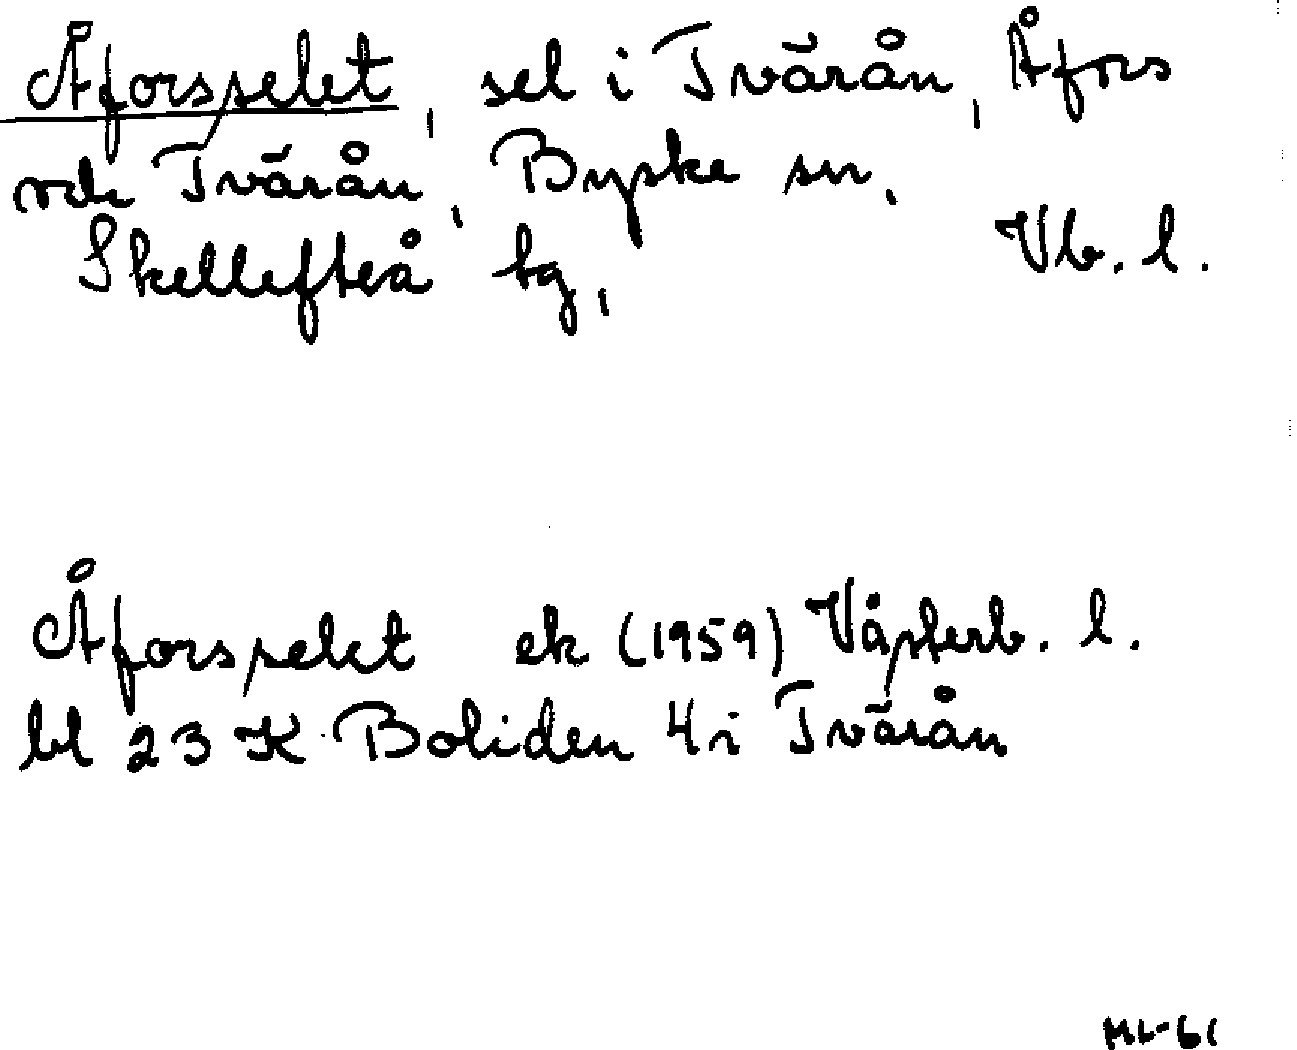 Åforsselet, sel i Tvärån, Åfors
och Tvärån, Byske sn,
Skellefteå tg, Vb. l.
Åforsselet ek (1959) Västerb. l.
bl 23 K Boliden 4i Tvärån
ML-61